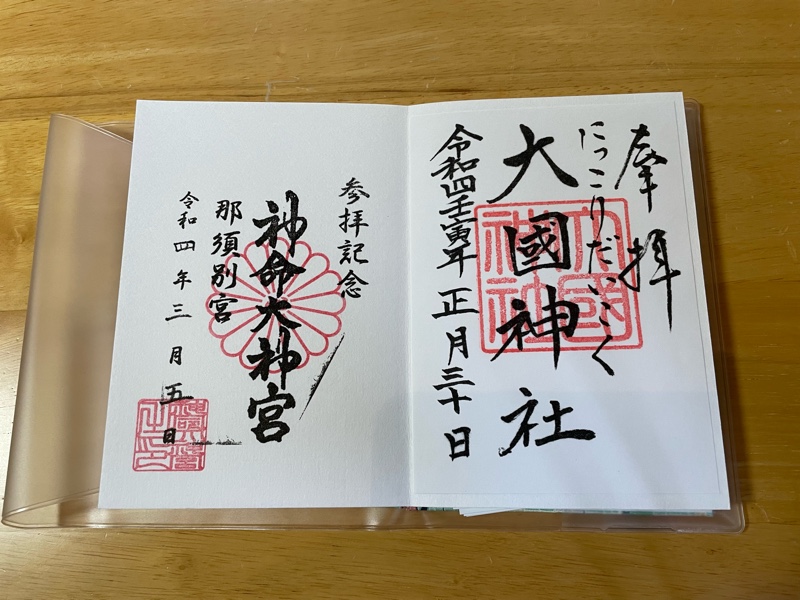 奉拝
にっこりだいこく
大國神社
令和四壬寅年 正月三十日
参拝記念
神命大神宮
那須別宮
令和四年三月五日